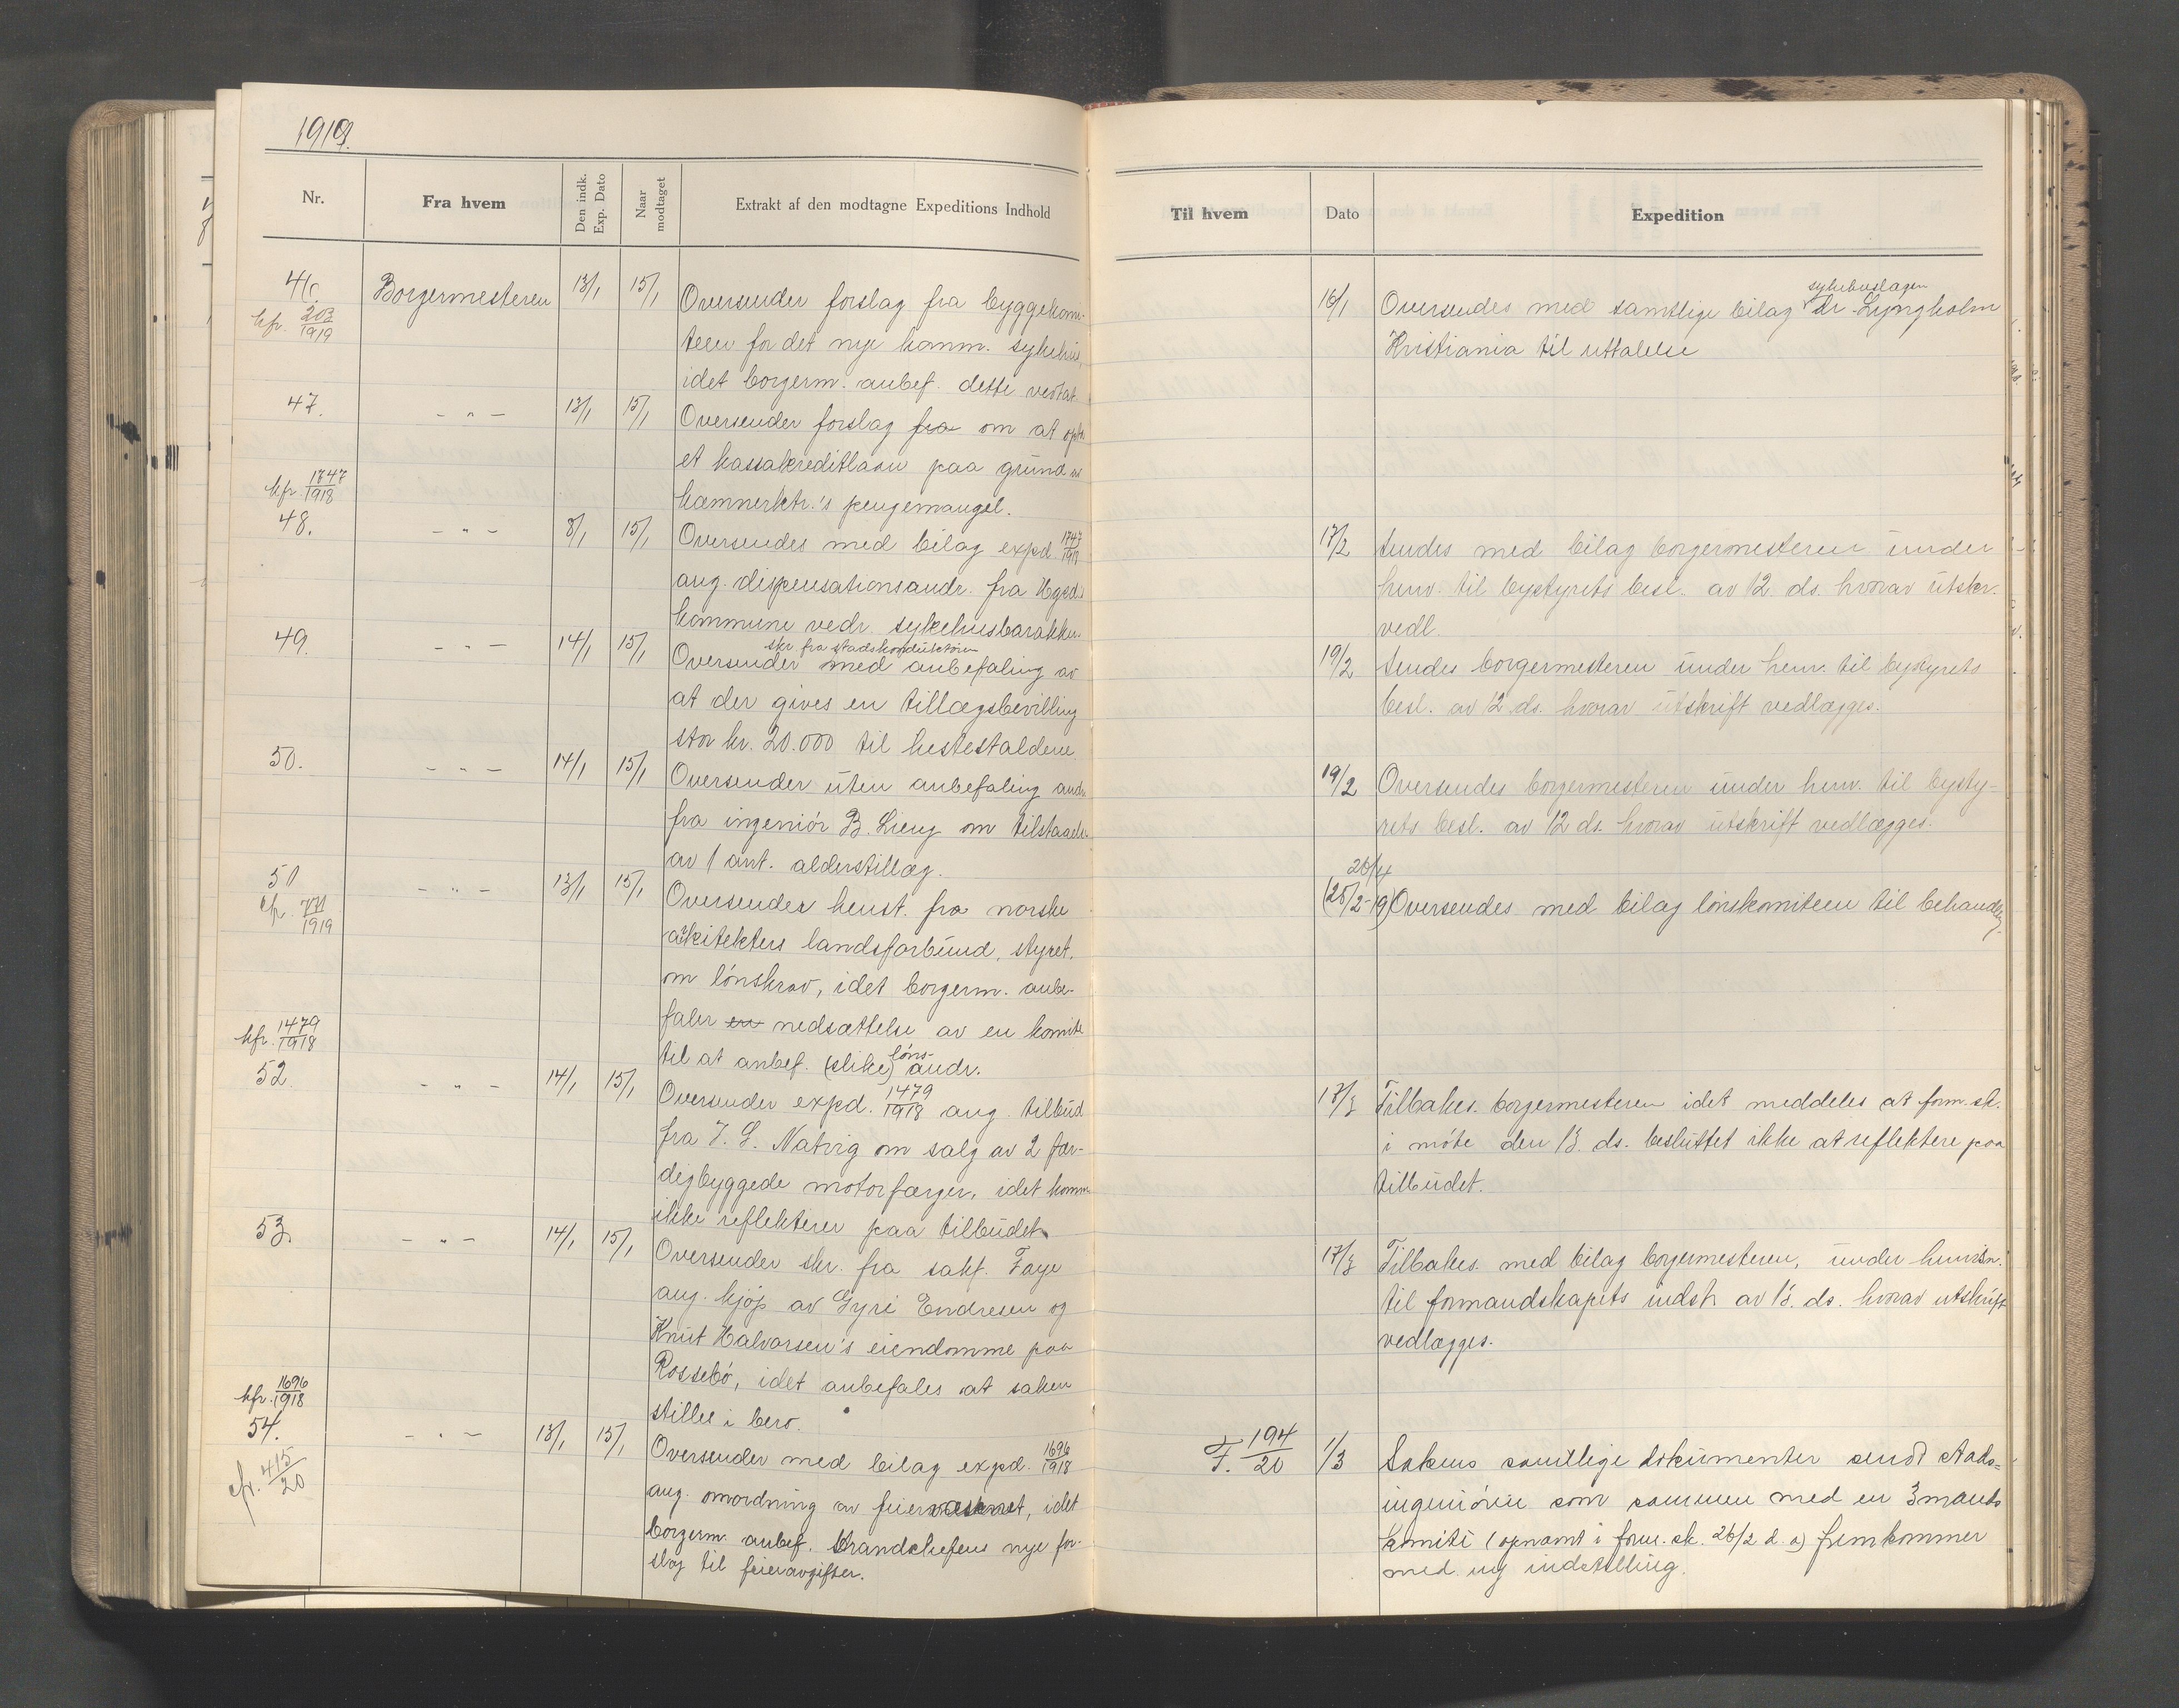 1919.
Nr.
Fra hvem
Den indk. Exp. Dato
Naar modtaget
Extrakt af den modtagne Expeditions Indhold
46.
kfr. 203/1919
Borgermesteren
13/1
15/1
Oversender forslag fra byggekomi-
teen for det nye komm. sykehus,
idet borgerm. anbef. dette vedtat.
47.
- " -
13/1
15/1
Oversender forslag fra om at opta
et kassakreditlaan paa grund av
kæmnerktr.'s pengemangel.
kfr. 1747/1918
48.
- " -
8/1
15/1
Oversendes med bilag expd. 1747/1918
ang. dispensationsandr. fra Hgsd.s
kommune vedr. sykehusbarakken.
49.
- " -
14/1
15/1
skr. fra stadskonduktøren
Oversender med anbefaling av
at der gives en tillægsbevilling
stor kr. 20.000 til hestestaldene
50.
- " -
14/1
15/1
Oversender uten anbefaling andr.
fra ingeniør B. Lieng om tilstaaelse
av 1 ant. alderstillæg.
51
cfr. 771/1919
- " -
13/1
15/1
Oversender henst. fra norske
arkitekters landsforbund, styret,
om lønskrav, idet borgerm. anbe-
faler en nedsættelse av en komite
til at anbef. (slike) løns- andr.
kfr. 1479/1918
52.
- " -
14/1
15/1
Oversender expd. 1479/1918 ang. tilbud
fra J. G. Natvig om salg av 2 fær-
digbyggede motorfærger, idet komm.
ikke reflekterer paa tilbudet.
53.
- " -
14/1
15/1
Oversender skr. fra sakf. Faye
ang. kjøp av Gyri Endresen og
Knut Halvorsen's eiendomme paa
Rossebø, idet anbefales at saken
stilles i bero.
kfr. 1696/1918
54.
cfr. 415/20
- " -
13/1
15/1
Oversender med bilag expd. 1696/1918
ang. omordning av feiervæsenet, idet
borgerm. anbef. brandchefens nye for-
slag til feieravgifter.
Til hvem
Dato
Expedition
16/1
sykehuslægen
Oversendes med samtlige bilag dr. Lyngholm
Kristiania til uttalelse
17/2
Sendes med bilag borgermesteren under
henv. til bystyrets besl. av 12. ds. hvorav utskr.
vedl.
19/2
Sendes borgermesteren under henv. til bystyrets
besl. av 12 ds. hvorav utskrift vedlægges.
19/2
Oversendes borgermesteren under henv. til bysty-
rets besl. av 12 ds. hvorav utskrift vedlægges.
26/4
(25/2-19) Oversendes med bilag lønskomiteen til behandling
17/3
Tilbakes. borgermesteren idet meddeles at form.sk.
i møte den 13. ds. besluttet ikke at reflektere paa
tilbudet.
17/3
Tilbakes. med bilag borgermesteren, under henvisn.
til formandskapets indst. av 13. ds. hvorav utskrift
vedlægges.
F. 194/20
1/3
Sakens samtlige dokumenter sendt stads-
ingeniøren som sammen med en 3 mands
komité (opnævnt i form.sk. 26/2 d. a.) fremkommer
med ny indstilling.